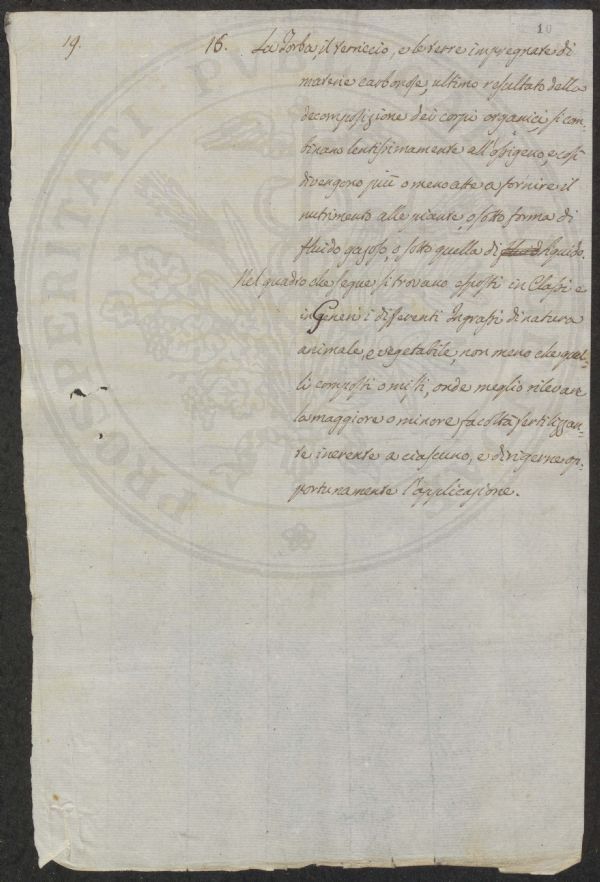 10
19.
16. La Torba, il terriccio, e le terre impregnate di
materie carbonose, ultimo resultato della
decomposizione dei corpi organici, si com-
binano lentissimamente all'ossigeno, e così
divengono più o meno atte a fornire il
nutrimento alle piante, o sotto forma di
fluido gazoso, o sotto quella di liquido.
Nel quadro che segue si trovano esposti in Classi e
in Generi i differenti Ingrassi di natura
animale, e vegetabile, non meno che quel-
li composti o misti, onde meglio rilevare
la maggiore o minore facoltà fertilizzan-
te inerente a ciascuno, e dirigerne op-
portunamente l'applicazione.
PROSPERITATI PUBL